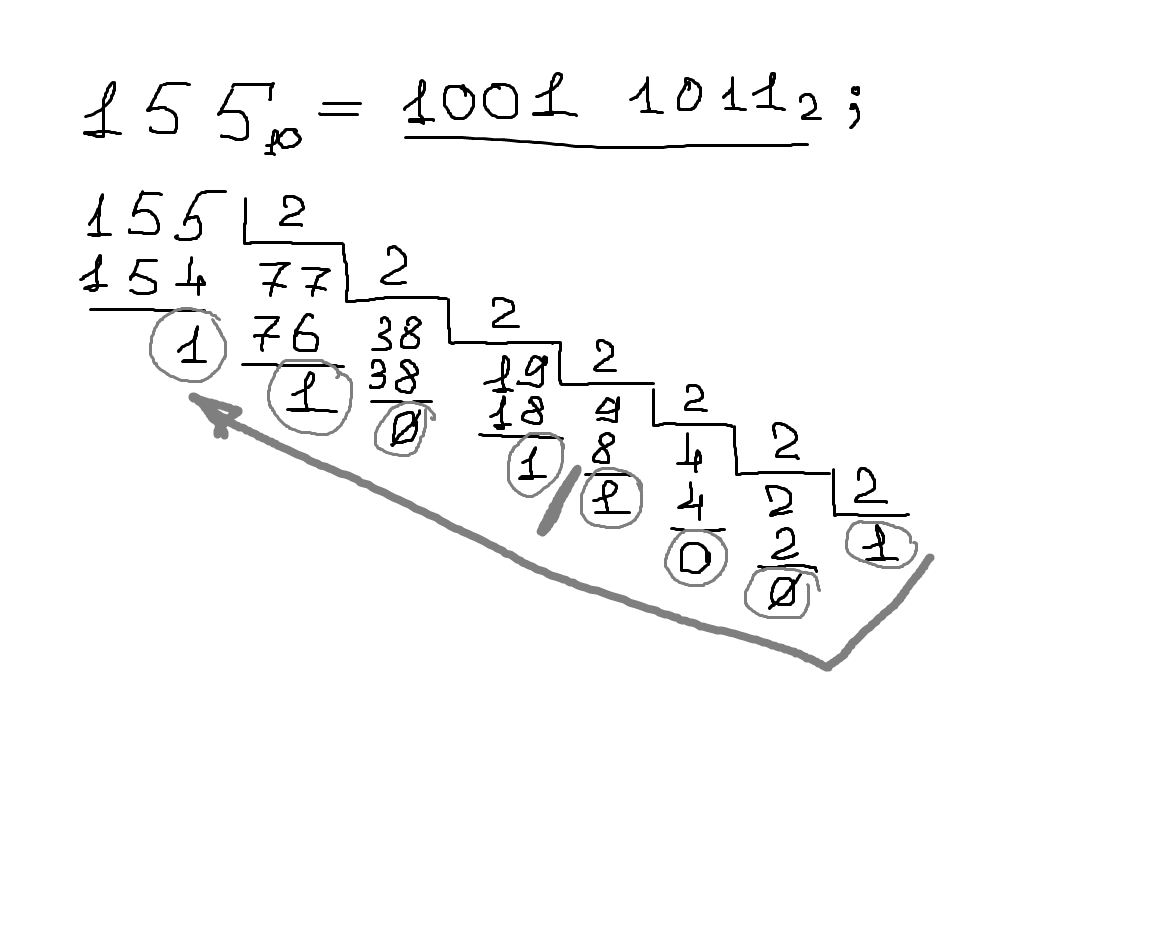 155₁₀ = 1001 1011₂ ;
155 2
154 77 2
1 76 38 2
1 38 19 2
0 18 9 2
1 8 4 2
1 4 2 2
0 2 1
0